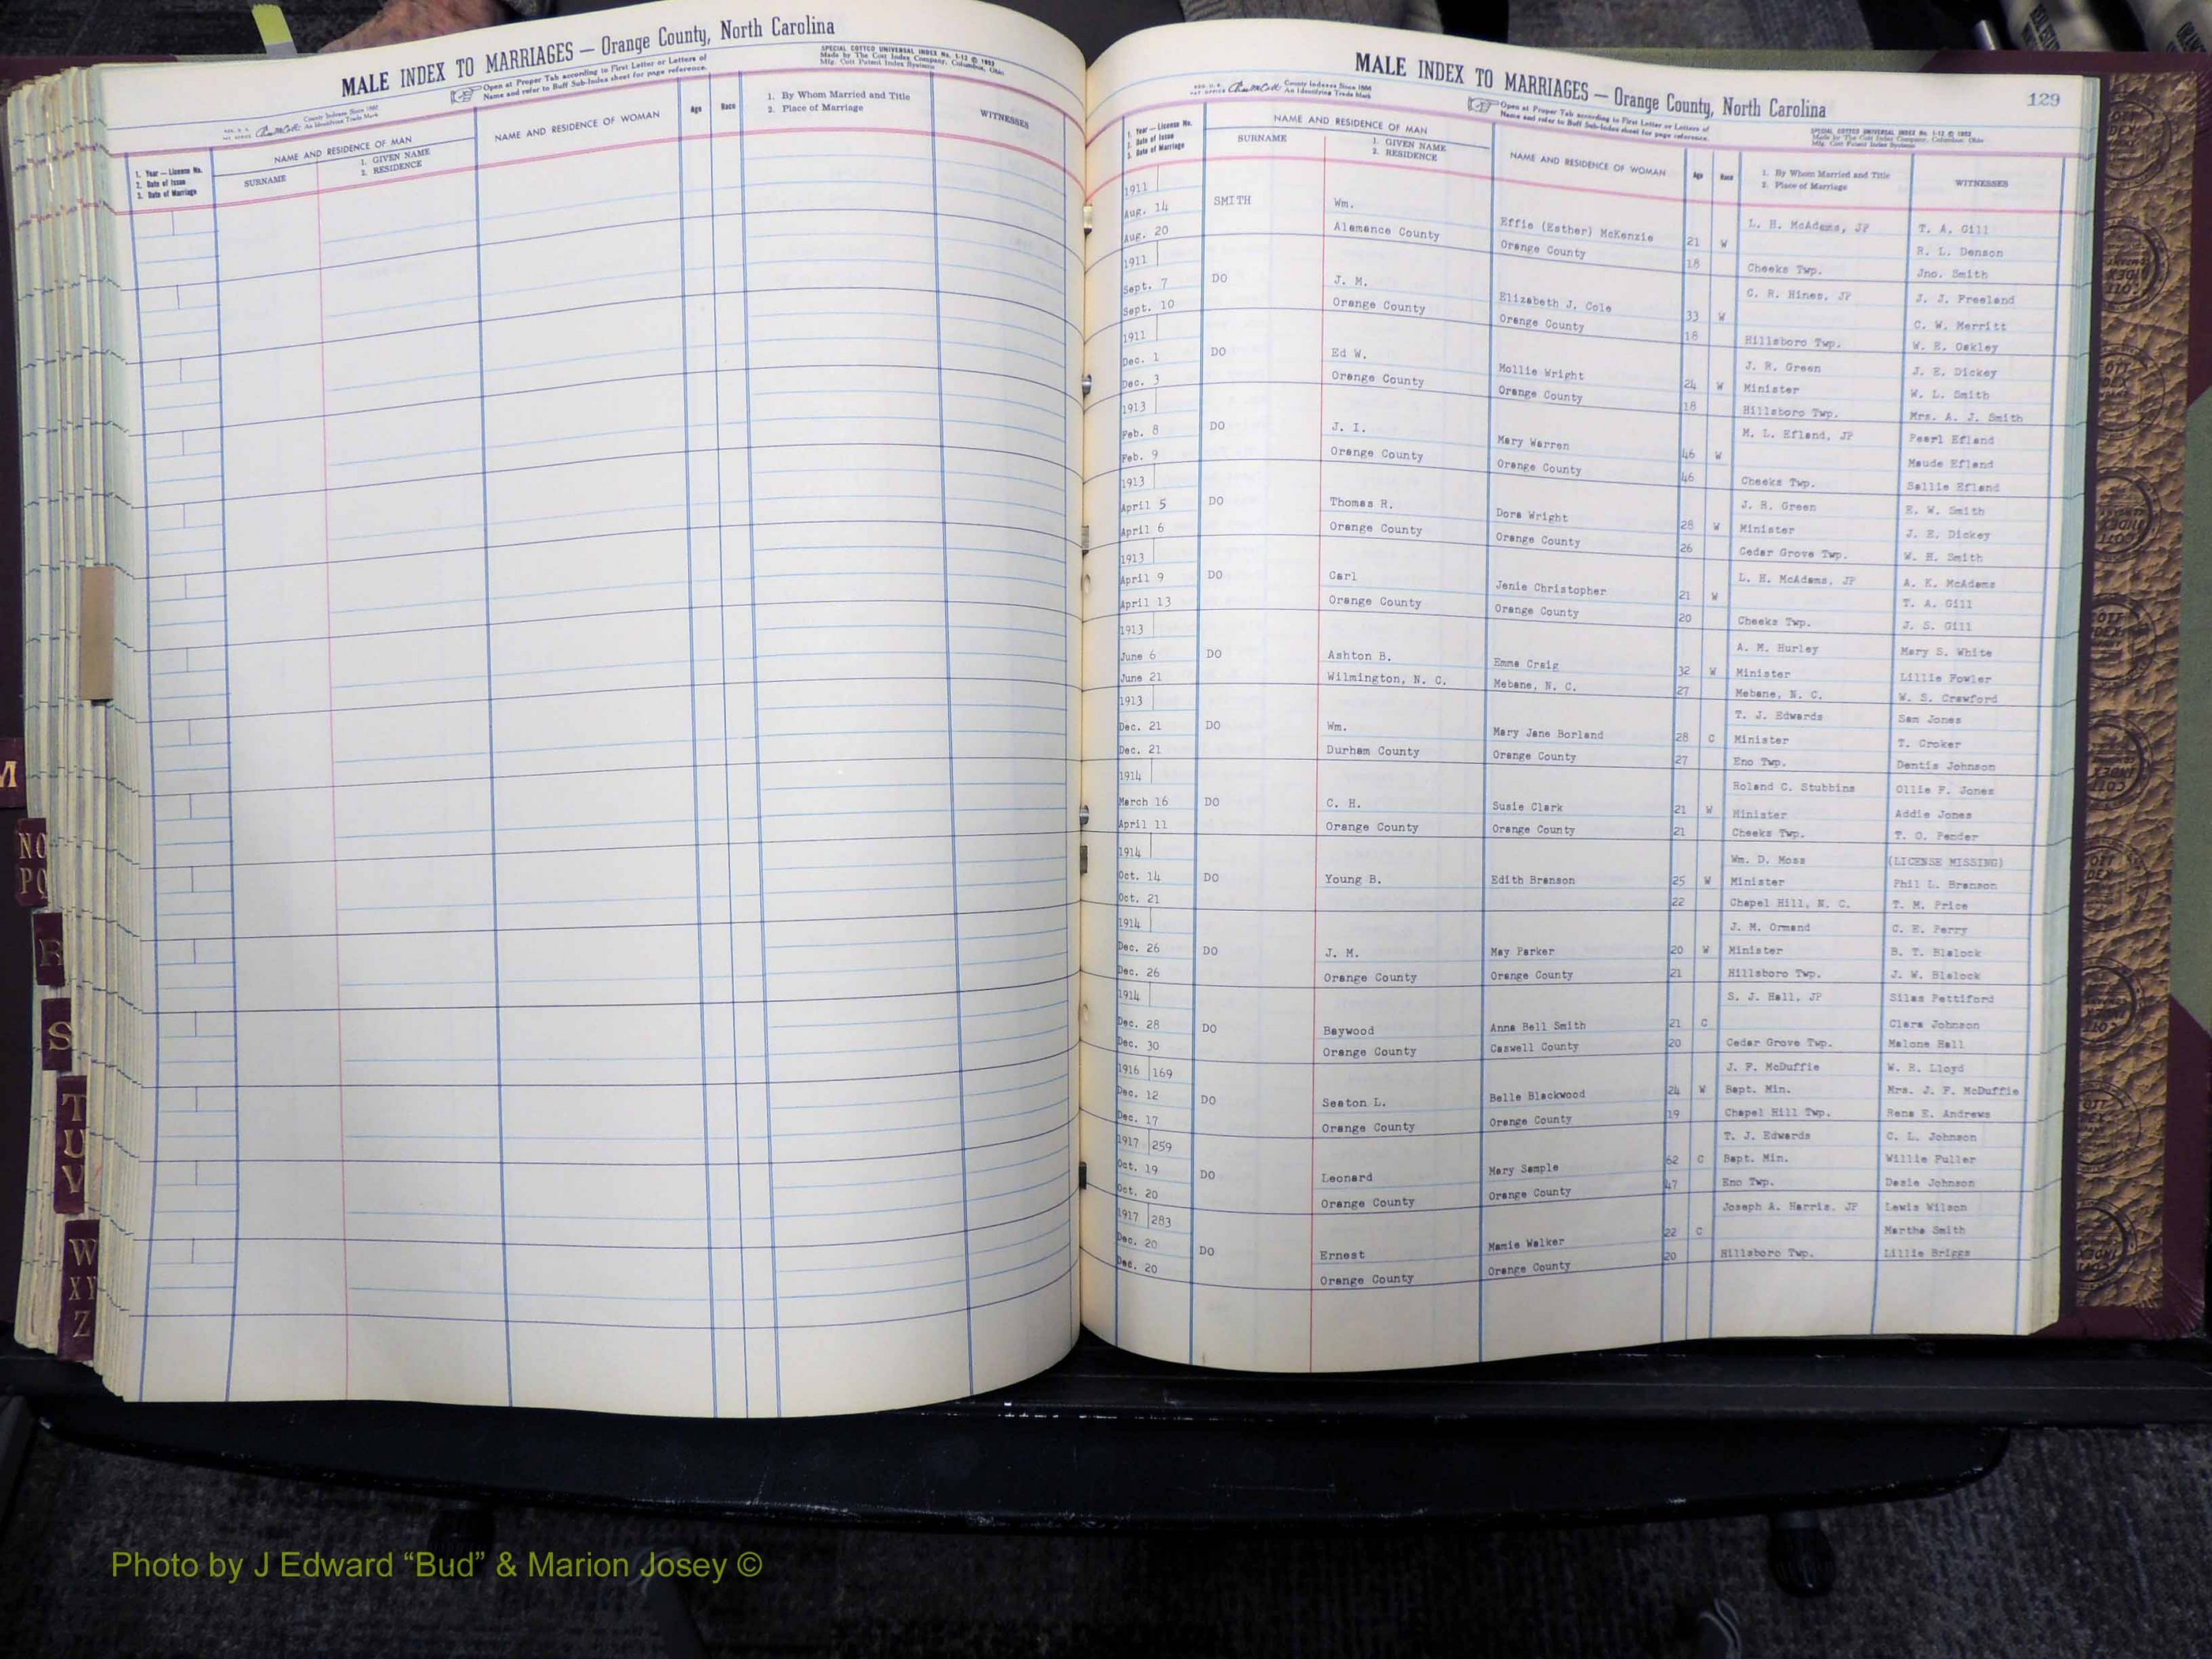 MALE INDEX TO MARRIAGES — Orange County, North Carolina
Open at Proper Tab according to First Letter or Letters of
Name and refer to Buff Sub-Index sheet for page reference.
SPECIAL COTTCO UNIVERSAL INDEX No. 1-12 © 1952
Made by The Cott Index Company, Columbus, Ohio
Mfg. Cott Patent Index Systems
County Indexes Since 1888
An Identifying Trade Mark
1. Year — License No.
2. Date of Issue
3. Date of Marriage
NAME AND RESIDENCE OF MAN
SURNAME
1. GIVEN NAME
2. RESIDENCE
NAME AND RESIDENCE OF WOMAN
Age
Race
1. By Whom Married and Title
2. Place of Marriage
WITNESSES
MALE INDEX TO MARRIAGES — Orange County, North Carolina
129
County Indexes Since 1888
An Identifying Trade Mark
Open at Proper Tab according to First Letter or Letters of
Name and refer to Buff Sub-Index sheet for page reference.
SPECIAL COTTCO UNIVERSAL INDEX No. 1-12 © 1952
Made by The Cott Index Company, Columbus, Ohio
Mfg. Cott Patent Index Systems
1. Year — License No.
2. Date of Issue
3. Date of Marriage
NAME AND RESIDENCE OF MAN
SURNAME
1. GIVEN NAME
2. RESIDENCE
NAME AND RESIDENCE OF WOMAN
Age
Race
1. By Whom Married and Title
2. Place of Marriage
WITNESSES
1911 L. H. McAdams, JP T. A. Gill
Aug. 14 SMITH Wm. Effie (Esther) McKenzie 21 W R. L. Denson
Aug. 20 Alamance County Orange County 18 Cheeks Twp. Jno. Smith
1911 C. R. Hines, JP J. J. Freeland
Sept. 7 DO J. M. Elizabeth J. Cole 33 W C. W. Merritt
Sept. 10 Orange County Orange County 18 Hillsboro Twp. W. E. Oakley
1911 J. R. Green J. E. Dickey
Dec. 1 DO Ed W. Mollie Wright 24 W Minister W. L. Smith
Dec. 3 Orange County Orange County 18 Hillsboro Twp. Mrs. A. J. Smith
1913 M. L. Efland, JP Pearl Efland
Feb. 8 DO J. I. Mary Warren 46 W Maude Efland
Feb. 9 Orange County Orange County 46 Cheeks Twp. Sallie Efland
1913 J. R. Green E. W. Smith
April 5 DO Thomas R. Dora Wright 28 W Minister J. E. Dickey
April 6 Orange County Orange County 26 Cedar Grove Twp. W. H. Smith
1913 L. H. McAdams, JP A. K. McAdams
April 9 DO Carl Janie Christopher 21 W T. A. Gill
April 13 Orange County Orange County 20 Cheeks Twp. J. S. Gill
1913 A. M. Hurley Mary S. White
June 6 DO Ashton B. Emma Craig 32 W Minister Lillie Fowler
June 21 Wilmington, N. C. Mebane, N. C. 27 Mebane, N. C. W. S. Crawford
1913 T. J. Edwards Sam Jones
Dec. 21 DO Wm. Mary Jane Borland 28 C Minister T. Croker
Dec. 21 Durham County Orange County 27 Eno Twp. Dentis Johnson
1914 Roland C. Stubbins Ollie F. Jones
March 16 DO C. H. Susie Clark 21 W Minister Addie Jones
April 11 Orange County Orange County 21 Cheeks Twp. T. O. Pender
1914 Wm. D. Moss (LICENSE MISSING)
Oct. 14 DO Young B. Edith Branson 25 W Minister Phil L. Branson
Oct. 21 22 Chapel Hill, N. C. T. M. Price
1914 J. M. Ormand C. E. Perry
Dec. 26 DO J. M. May Parker 20 W Minister B. T. Blalock
Dec. 26 Orange County Orange County 21 Hillsboro Twp. J. W. Blalock
1914 S. J. Hall, JP Silas Pettiford
Dec. 28 DO Haywood Anna Bell Smith 21 C Clara Johnson
Dec. 30 Orange County Caswell County 20 Cedar Grove Twp. Malone Hall
1916 169 J. F. McDuffie W. R. Lloyd
Dec. 12 DO Seaton L. Belle Blackwood 24 W Bapt. Min. Mrs. J. F. McDuffie
Dec. 17 Orange County Orange County 19 Chapel Hill Twp. Rena E. Andrews
1917 259 T. J. Edwards C. L. Johnson
Oct. 19 DO Leonard Mary Sample 62 C Bapt. Min. Willie Fuller
Oct. 20 Orange County Orange County 47 Eno Twp. Dezie Johnson
1917 283 Joseph A. Harris, JP Lewis Wilson
Dec. 20 DO Ernest Mamie Walker 22 C Martha Smith
Dec. 20 Orange County Orange County 20 Hillsboro Twp. Lillie Briggs
M
NO
PQ
R
S
T
U
V
W
XY
Z
Photo by J Edward “Bud” & Marion Josey ©